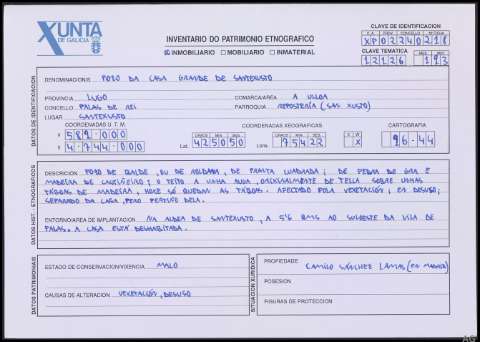 XUNTA
DE GALICIA
INVENTARIO DO PATRIMONIO ETNOGRAFICO
INMOBILIARIO MOBILIARIO INMATERIAL
CLAVE DE IDENTIFICACION
XP02240218
CLAVE TEMATICA
12126 193
DATOS DE IDENTIFICACION
DENOMINACION/S POZO DA CASA GRANDE DE SANTEXUSTO
PROVINCIA LUGO COMARCA/AREA A ULLOA
CONCELLO PALAS DE REI PARROQUIA REPOSTERÍA (SAN XUSTO)
LUGAR SANTEXUSTO
COORDENADAS U.T.M. COORDENADAS XEOGRAFICAS CARTOGRAFIA
X 589.000
Y 4.744.000
Lat. 425050 Lonx. 75422 W X 96-44
DATOS HIST. - ETNOGRAFICOS
DESCRICION POZO DE BALDE, OU DE ROLDANA, DE PLANTA CUADRADA; DE PEDRA DE GRA E
MADEIRA DE CASTIÑEIRO; O TEITO A UNHA AUGA, ORIXINALMENTE DE TELLA SOBRE UNHAS
TÁBOAS DE MADEIRA, HOXE SÓ QUEDAN AS TÁBOAS. AFECTADO POLA VEXETACIÓN; EN DESUSO;
SEPARADO DA CASA, PERO PERTO DELA.
ENTORNO/AREA DE IMPLANTACION NA ALDEA DE SANTEXUSTO, A 5'6 KMS AO SUROESTE DA VILA DE
PALAS. A CASA ESTÁ DESHABITADA.
DATOS PATRIMONIAIS
ESTADO DE CONSERVACION/VIXENCIA MALO
CAUSAS DE ALTERACION VEXETACIÓN, DESUSO
SITUACION XURIDICA
PROPIEDADE CAMILO SÁNCHEZ LAMAS (EN MADRID)
POSESION
FIGURAS DE PROTECCION
AG